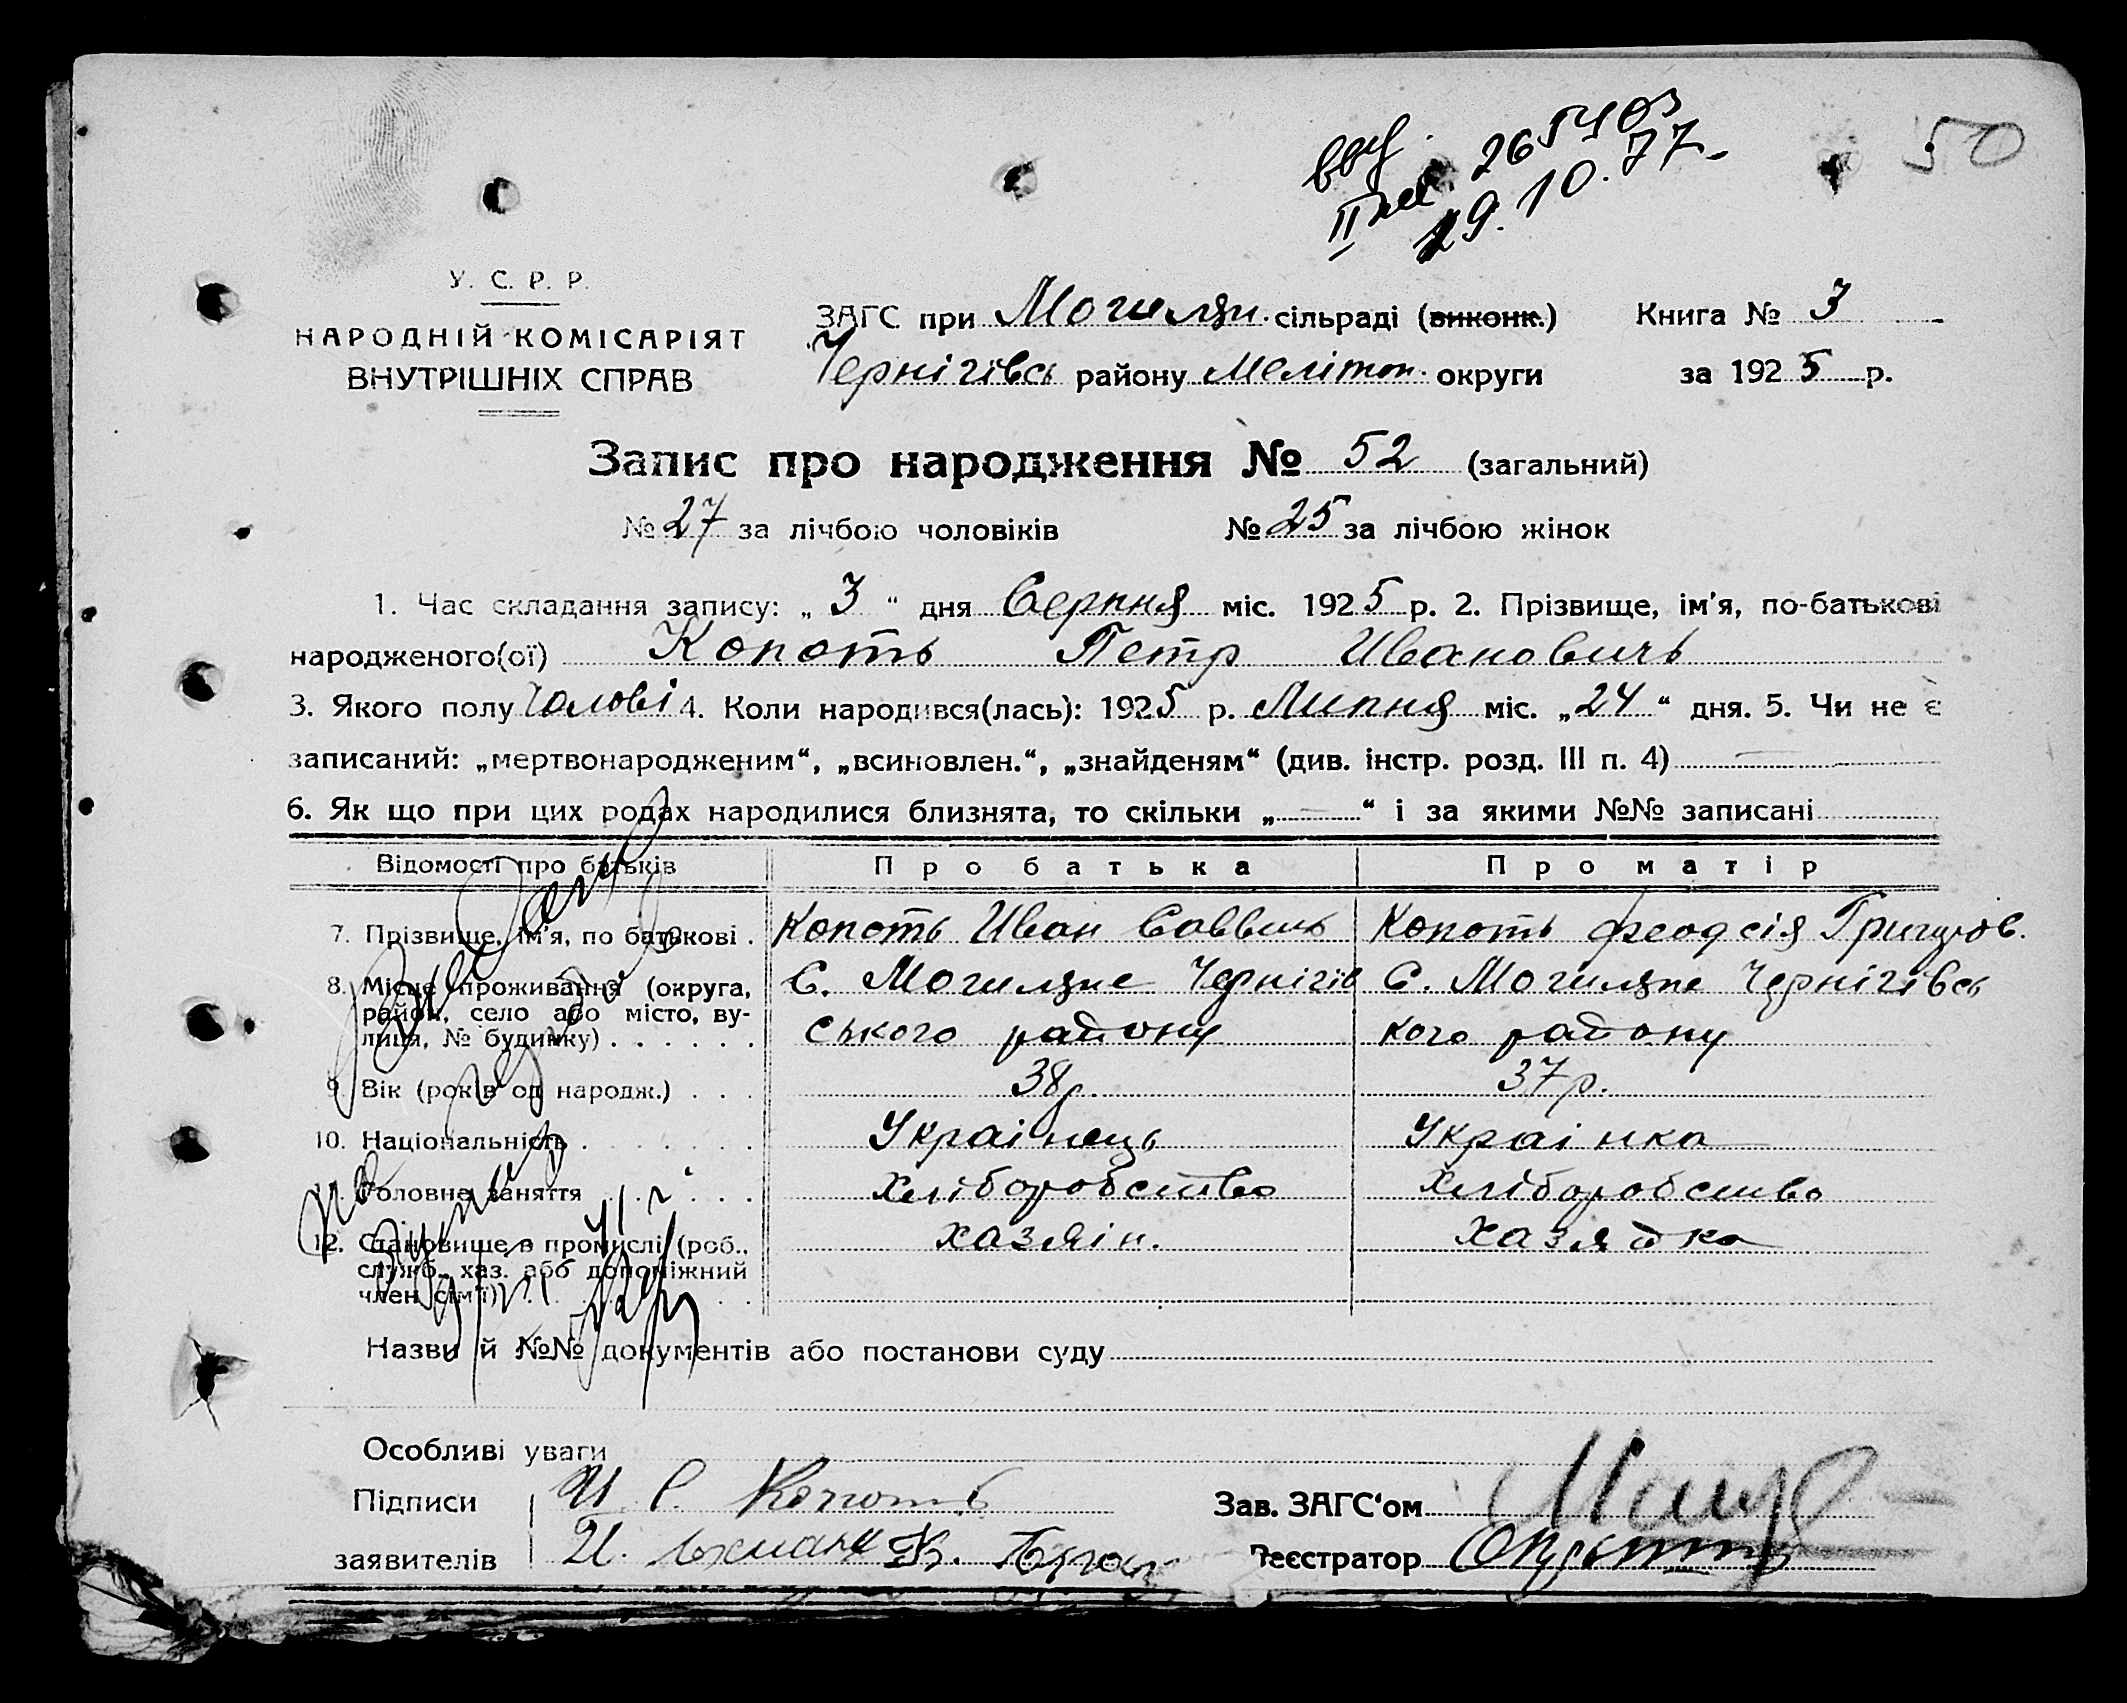 50
26 54 03
29.10.77.
У. С. Р. Р.
НАРОДНІЙ КОМІСАРІЯТ
ВНУТРІШНІХ СПРАВ
ЗАГС при Могилян. сільраді (виконк.) Книга № 3
Чернігівсь району Меліт. округи за 1925 р.
Запис про народження № 52 (загальний)
№ 27 за лічбою чоловіків № 25 за лічбою жінок
1. Час складання запису: „ 3 “ дня Серпня міс. 1925 р. 2. Прізвище, ім'я, по-батькові
народженого(ої) Копоть Петр Ивановичь
3. Якого полу Чолові 4. Коли народився(лась): 1925 р. Липня міс. „24“ дня. 5. Чи не є
записаний: „мертвонародженим“, „всиновлен.“, „знайденям“ (див. інстр. розд. III п. 4)
6. Як що при цих родах народилися близнята, то скільки „ — “ і за якими №№ записані
Відомості про батьків Про батька Про матір
7. Прізвище, ім'я, по батькові . Копоть Иван Саввичь Копоть Феодсія Григоров.
8. Місце проживання (округа, С. Могиляне Чернігів С. Могиляне Чернігівсь
район, село або місто, ву-
лиця, № будинку) . . . . . . ського району кого району
9. Вік (років од народж.) . . . 38р. 37р.
10. Національність . . . . . . Українець Українка
11. Головне заняття . . . . . Хліборобство Хліборобство
12. Становище в промислі (роб., хазяін. Хазяйка
служб., хаз. або допоміжний
член сім'ї) . . . . . .
Назви й №№ документів або постанови суду
Особливі уваги
Підписи И. С. Копоть Зав. ЗАГС‘ом
заявителів И. К. Реєстратор